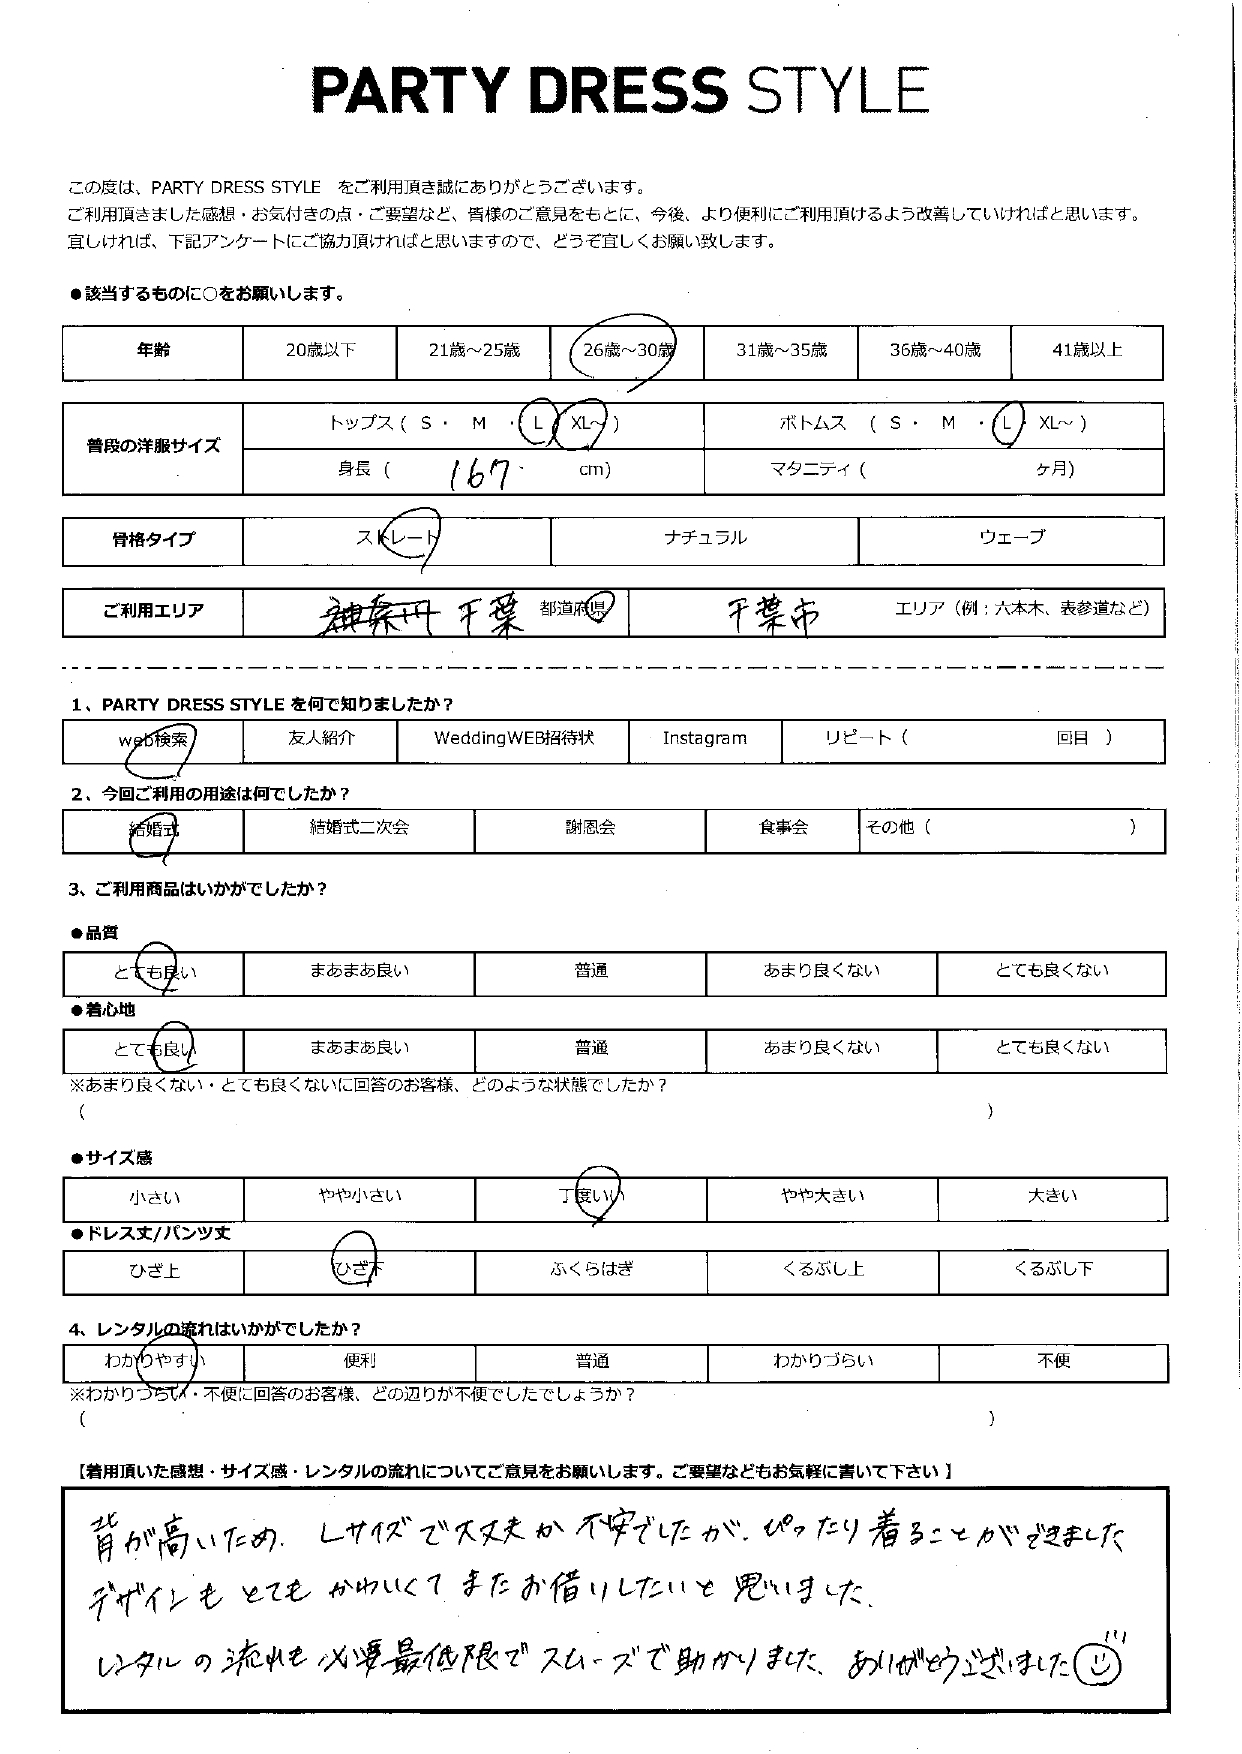 PARTY DRESS STYLE
この度は、PARTY DRESS STYLE をご利用頂き誠にありがとうございます。
ご利用頂きました感想・お気付きの点・ご要望など、皆様のご意見をもとに、今後、より便利にご利用頂けるよう改善していければと思います。
宜しければ、下記アンケートにご協力頂ければと思いますので、どうぞ宜しくお願い致します。
●該当するものに○をお願いします。
年齢 20歳以下 21歳～25歳 26歳～30歳 31歳～35歳 36歳～40歳 41歳以上
普段の洋服サイズ
トップス ( S ・ M ・ L ・ XL～ ) ボトムス ( S ・ M ・ L ・ XL～ )
身長 ( 167 cm) マタニティ ( ヶ月)
骨格タイプ ストレート ナチュラル ウェーブ
ご利用エリア 神奈川 千葉 都道府県 千葉市 エリア（例：六本木、表参道など）
1、PARTY DRESS STYLE を何で知りましたか？
web検索 友人紹介 WeddingWEB招待状 Instagram リピート（ 回目 ）
2、今回ご利用の用途は何でしたか？
結婚式 結婚式二次会 謝恩会 食事会 その他（ ）
3、ご利用商品はいかがでしたか？
●品質
とても良い まあまあ良い 普通 あまり良くない とても良くない
●着心地
とても良い まあまあ良い 普通 あまり良くない とても良くない
※あまり良くない・とても良くないに回答のお客様、どのような状態でしたか？
( )
●サイズ感
小さい やや小さい 丁度いい やや大きい 大きい
●ドレス丈/パンツ丈
ひざ上 ひざ下 ふくらはぎ くるぶし上 くるぶし下
4、レンタルの流れはいかがでしたか？
わかりやすい 便利 普通 わかりづらい 不便
※わかりづらい・不便に回答のお客様、どの辺りが不便でしたでしょうか？
( )
【着用頂いた感想・サイズ感・レンタルの流れについてご意見をお願いします。ご要望などもお気軽に書いて下さい】
背が高いため、Lサイズで大丈夫か不安でしたが、ぴったり着ることができました
デザインもとてもかわいくてまたお借りしたいと思いました。
レンタルの流れも必要最低限でスムーズで助かりました、ありがとうございました